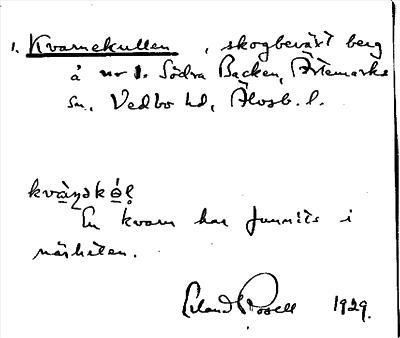 1. Kvarnekullen, skogbeväxt berg
å nr 1. Södra Backen, Ärtemarks
sn, Vedbo hd, Älvsb. l.
kvàṇəkɵ́ḷ
En kvarn har funnits i
närheten.
Erland Rosell 1929.